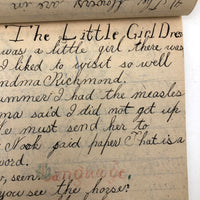 The Little Girl Dre
was a little girl there was
I liked to visit so well
ndma Richmond.
ummer I had the measles
ma said I did not get up
e must send her to
Nook said paper That is a
word.
seen
you see the horse?